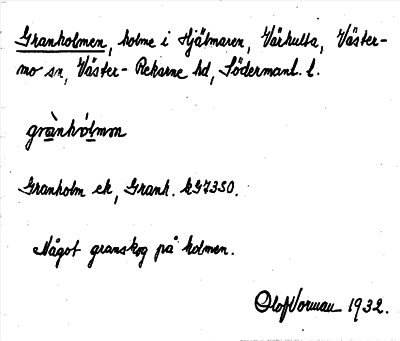 Granholmen, holme i Hjälmaren, Vårhulta, Väster-
mo sn, Väster-Rekarne hd, Södermanl. l.
grànhólmən
Granholm ek, Granh. kG7350.
Något granskog på holmen.
Olof Vorman 1932.